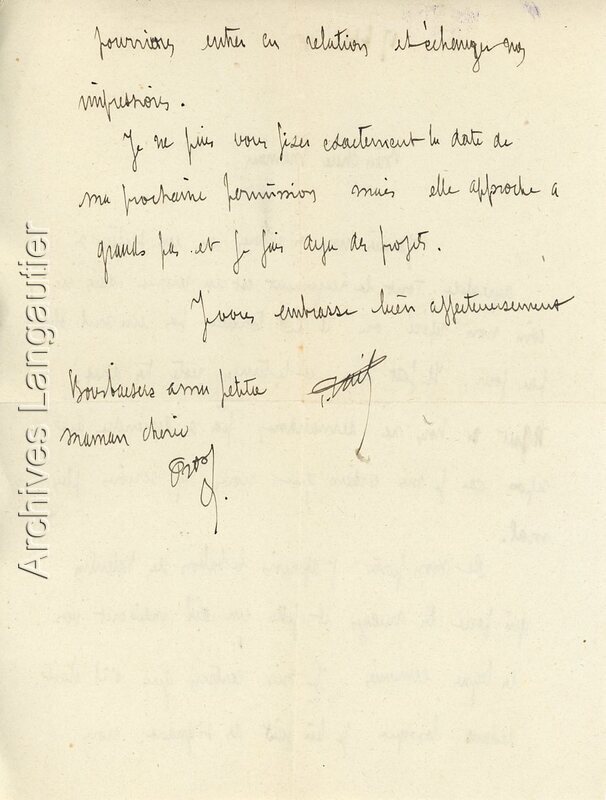 pourrions entrer en relation et échanger nos
impressions.
Je ne puis vous fixer exactement la date de
ma prochaine permission mais elle approche a
grands pas et je fais deja des projets.
Je vous embrasse bien affectueusement
Bons baisers a ma petite
maman cherie
Archives Langautier